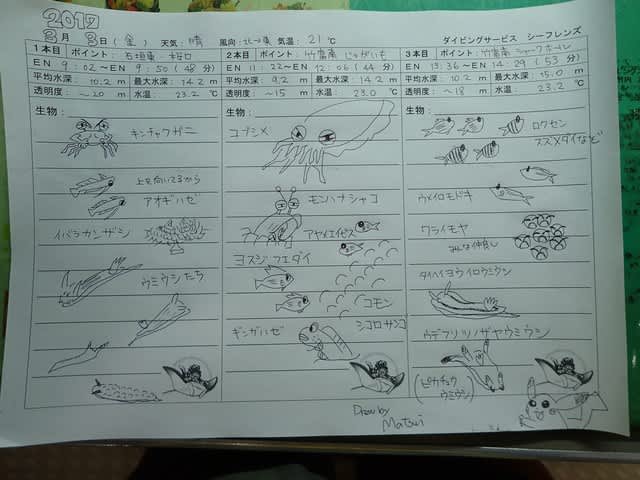 2017
3月 3日(金) 天気:晴 風向:北→東 気温:21℃ ダイビングサービス シーフレンズ
1本目 ポイント:石垣東 桜口
EN 9:02～EN 9:50(48分)
平均水深:10.2m 最大水深:14.2m
透明度:～20m 水温:23.2℃
生物:
キンチャクガニ
上を向いてるから
アオギハゼ
イバラカンザシ
ウミウシたち
2本目 ポイント:竹富南 じゃがいも
EN 11:22～EN 12:06(44分)
平均水深:9.2m 最大水深:14.2m
透明度:～15m 水温:23.0℃
生物:
コブシメ
モンハナシャコ
アヤメエビス
ヨスジフエダイ
コモン
シコロサンゴ
ギンガハゼ
3本目 ポイント:竹富南 シャークホール
EN 13:36～EN 14:29(53分)
平均水深:10.2m 最大水深:15.0m
透明度:～18m 水温:23.2℃
生物:
ロクセン
スズメダイなど
ウメイロモドキ
クライモヤ
みんな仲良し
タイヘイヨウイロウミウシ
ウデフリツノザヤウミウシ
(ピカチュウ
ウミウシ)
Draw by
Matsui